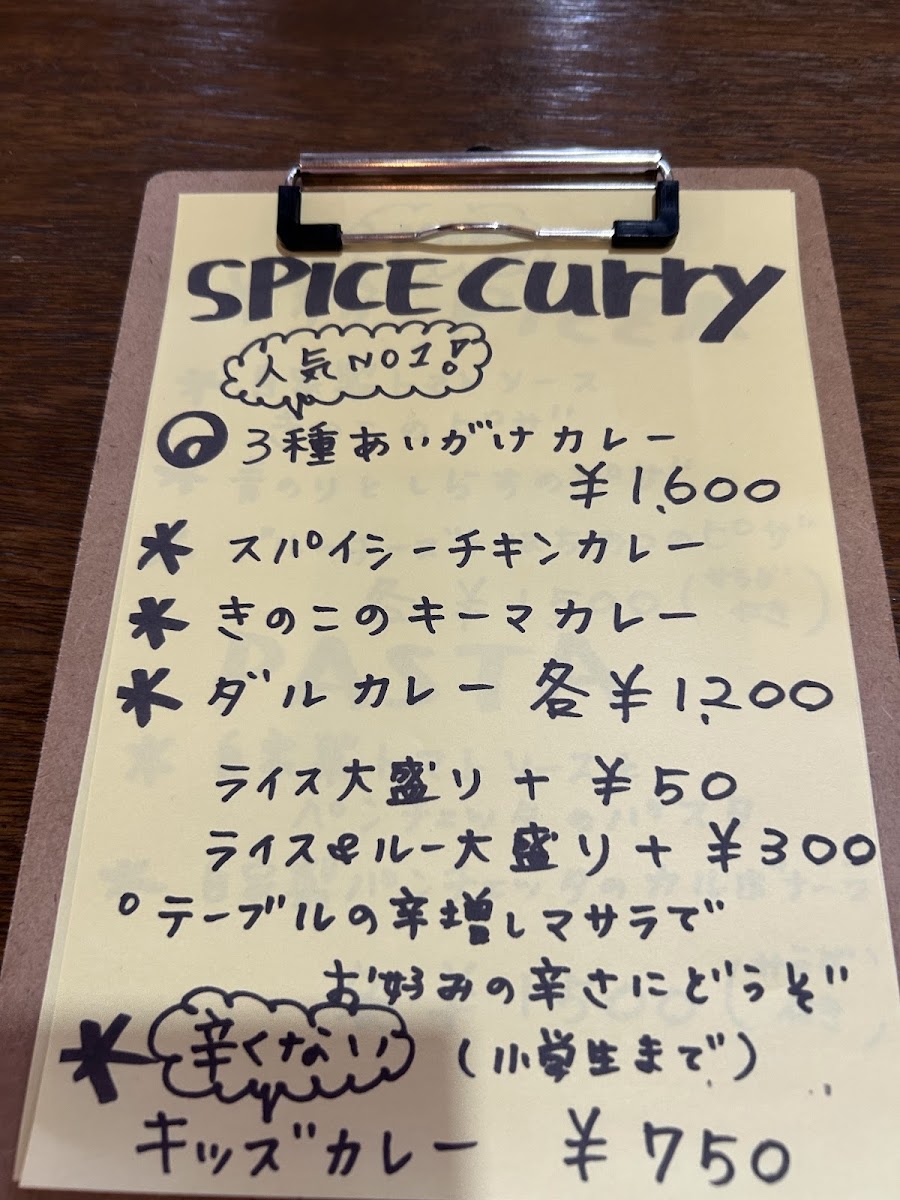 SPICE Curry
人気NO1!
3種あいがけカレー
¥1,600
* スパイシーチキンカレー
* きのこのキーマカレー
* ダルカレー 各¥1,200
ライス大盛り+ ¥50
ライス&ルー大盛り+ ¥300
°テーブルの辛増しマサラで
お好みの辛さにどうぞ
* 辛くない (小学生まで)
キッズカレー ¥750